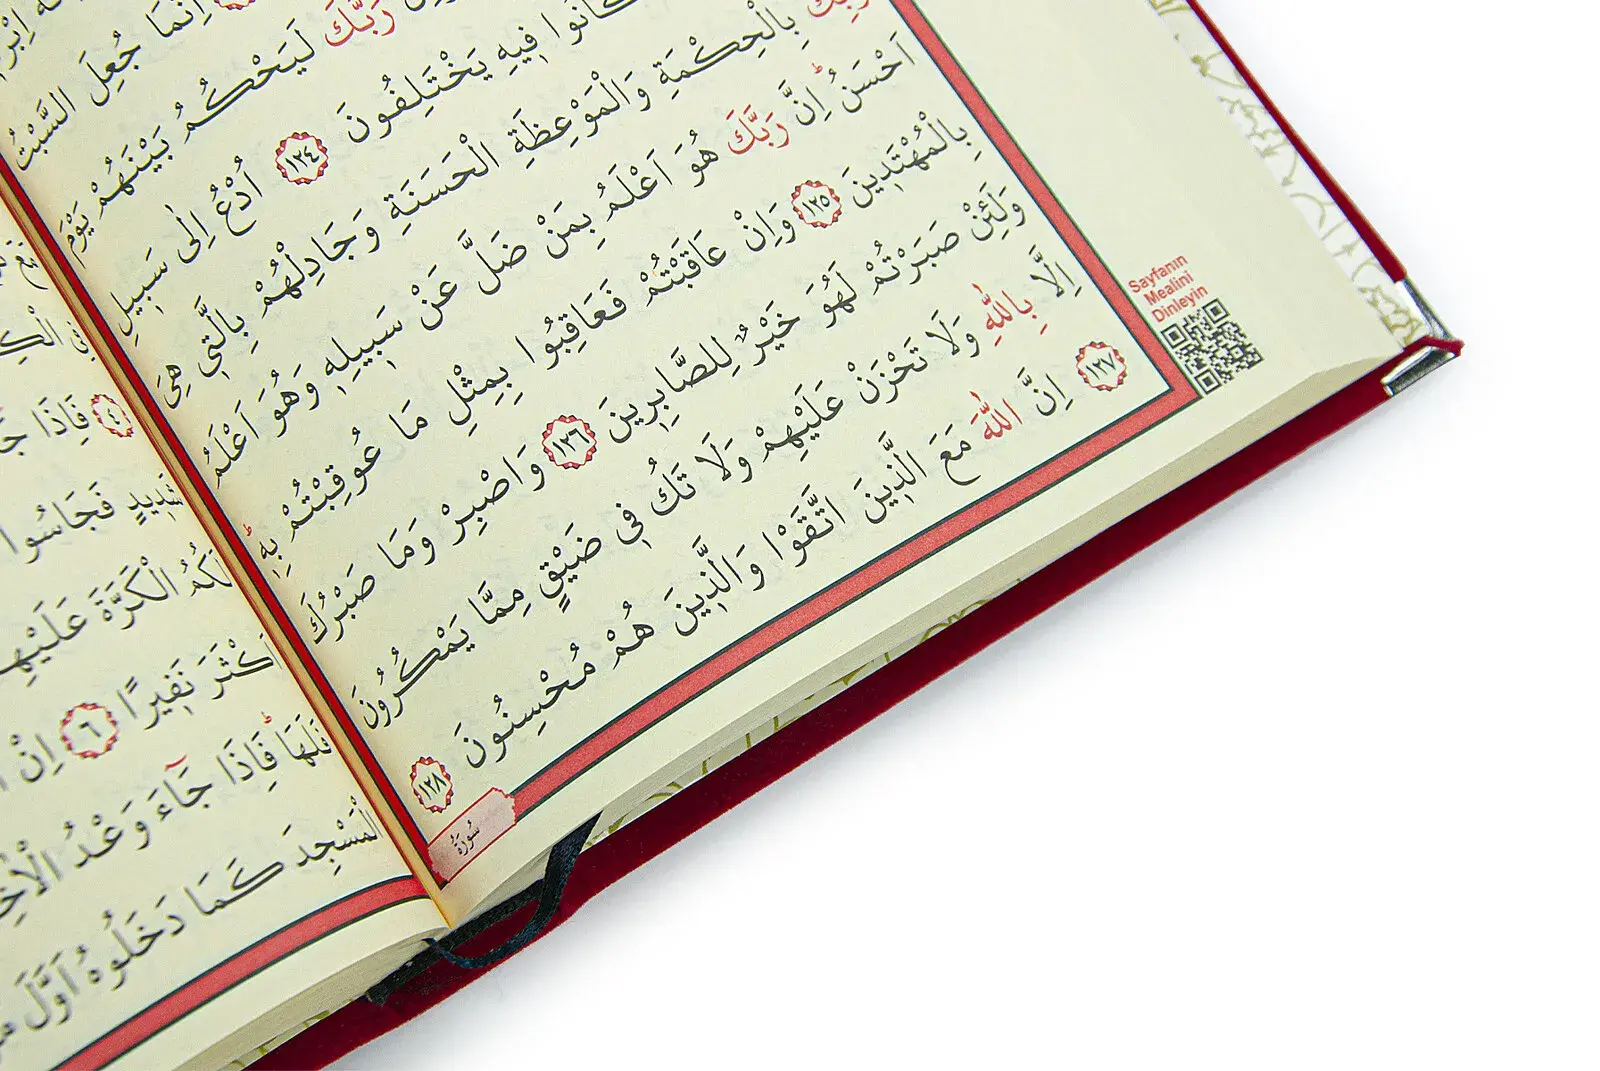 اِنَّمَا جُعِلَ السَّبْتُ
رَبَّكَ لَيَحْكُمُ بَيْنَهُمْ يَوْمَ
كَانُوا فِيهِ يَخْتَلِفُونَ ١٢٤ اُدْعُ اِلٰى سَبِيلِ
رَبِّكَ بِالْحِكْمَةِ وَالْمَوْعِظَةِ الْحَسَنَةِ وَجَادِلْهُمْ بِالَّتِي هِيَ
اَحْسَنُۜ اِنَّ رَبَّكَ هُوَ اَعْلَمُ بِمَنْ ضَلَّ عَنْ سَبِيلِهِ وَهُوَ اَعْلَمُ
بِالْمُهْتَدِينَ ١٢٥ وَاِنْ عَاقَبْتُمْ فَعَاقِبُوا بِمِثْلِ مَا عُوقِبْتُمْ بِهِۜ
وَلَئِنْ صَبَرْتُمْ لَهُوَ خَيْرٌ لِلصَّابِرِينَ ١٢٦ وَاصْبِرْ وَمَا صَبْرُكَ
اِلَّا بِاللّٰهِ وَلَا تَحْزَنْ عَلَيْهِمْ وَلَا تَكُ فِي ضَيْقٍ مِمَّا يَمْكُرُونَ
١٢٧ اِنَّ اللّٰهَ مَعَ الَّذِينَ اتَّقَوْا وَالَّذِينَ هُمْ مُحْسِنُونَ ١٢٨
سُورَةُ
Sayfanın
Mealini
Dinleyin
فِي
٤ فَاِذَا
شَدِيدٍ فَجَاسُوا
لَكُمُ الْكَرَّةَ
اَكْثَرَ نَفِيرًا ٦ اِنْ
فَلَهَاۜ فَاِذَا جَٓاءَ وَعْدُ
الْمَسْجِدَ كَمَا دَخَلُوهُ اَوَّلَ